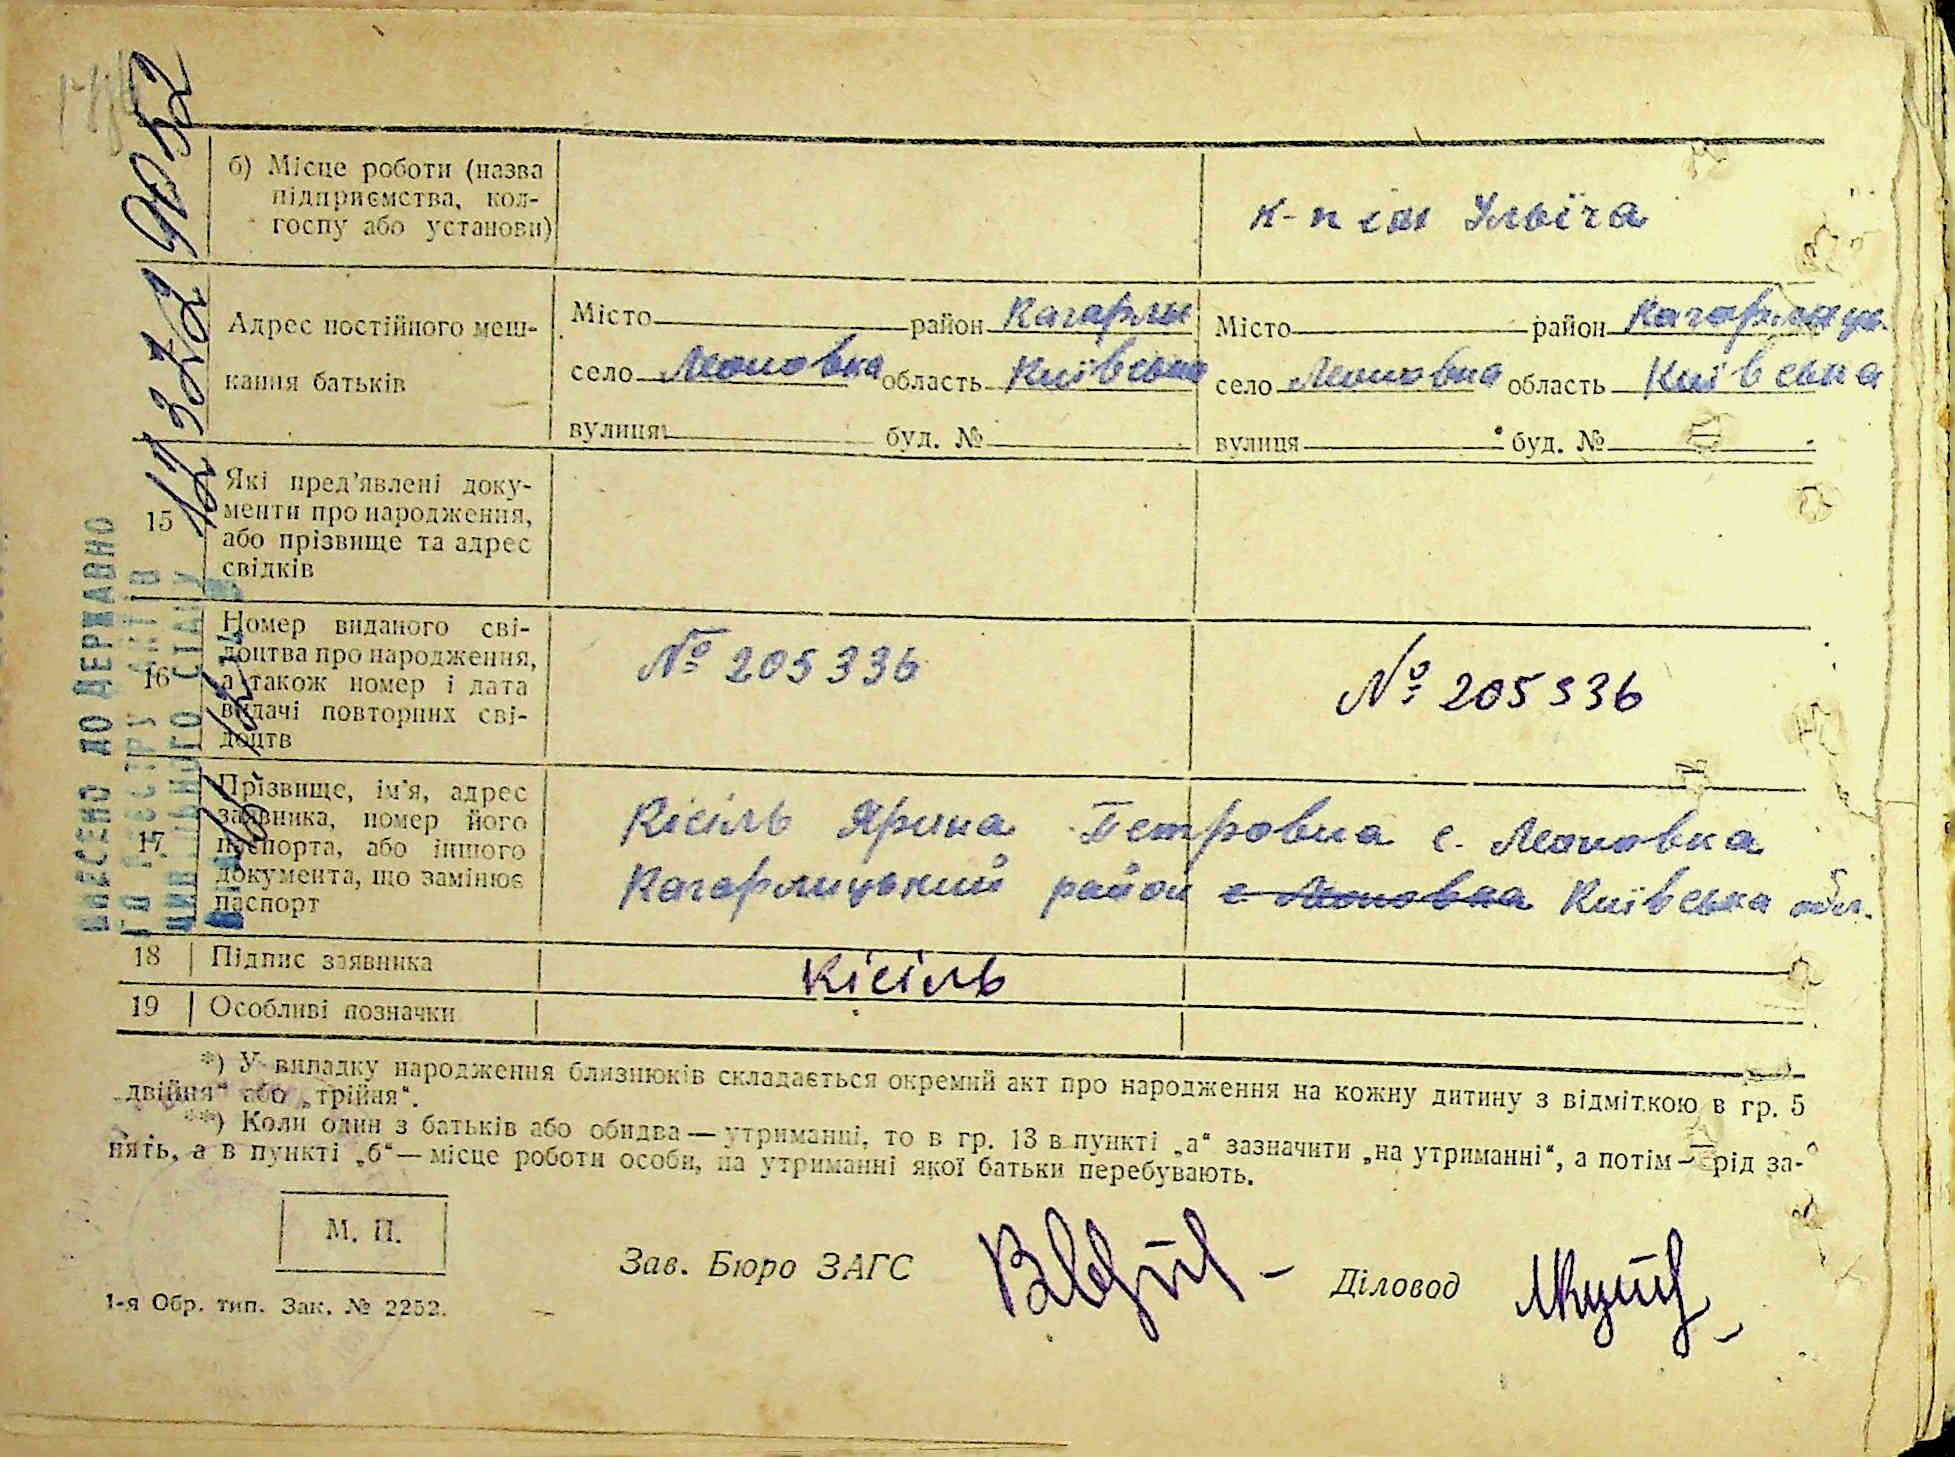 б) Місце роботи (назва
підприємства, кол-
госпу або установи)
к-п ім Ульіча
Адрес постійного меш-
кання батьків
Місто район Кагарли
село Леоновка область Київська
вулиця буд. №
Місто район Кагарлицьк.
село Леоновка область Київська
вулиця буд. №
15
Які пред'явлені доку-
менти про народження,
або прізвище та адрес
свідків
16
Номер виданого сві-
доцтва про народження,
а також номер і дата
видачі повторних сві-
доцтв
№ 205336
№ 205336
17
Прізвище, ім'я, адрес
заявника, номер його
паспорта, або іншого
документа, що замінює
паспорт
Кісіль Ярина Петровна с. Леоновка
Кагарлицький район с Леоновка Київська обл.
18 Підпис заявника Кісіль
19 Особливі позначки
*) У випадку народження близнюків складається окремий акт про народження на кожну дитину з відміткою в гр. 5
„двійня“ або „трійня“.
**) Коли один з батьків або обидва — утриманці, то в гр. 13 в пункті „а“ зазначити „на утриманні“, а потім — рід за-
нять, а в пункті „б“ — місце роботи особи, на утриманні якої батьки перебувають.
М. П.
Зав. Бюро ЗАГС
Діловод
1-я Обр. тип. Зак. № 2252.
ВНЕСЕНО ДО ДЕРЖАВНО
ГО РЕЄСТРУ АКТІВ
ЦИВІЛЬНОГО СТАНУ